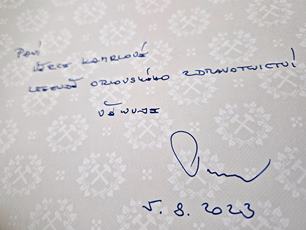 Paní
Věře Kamrlové
legendě orlovského zdravotnictví
věnuje
5. 8. 2023